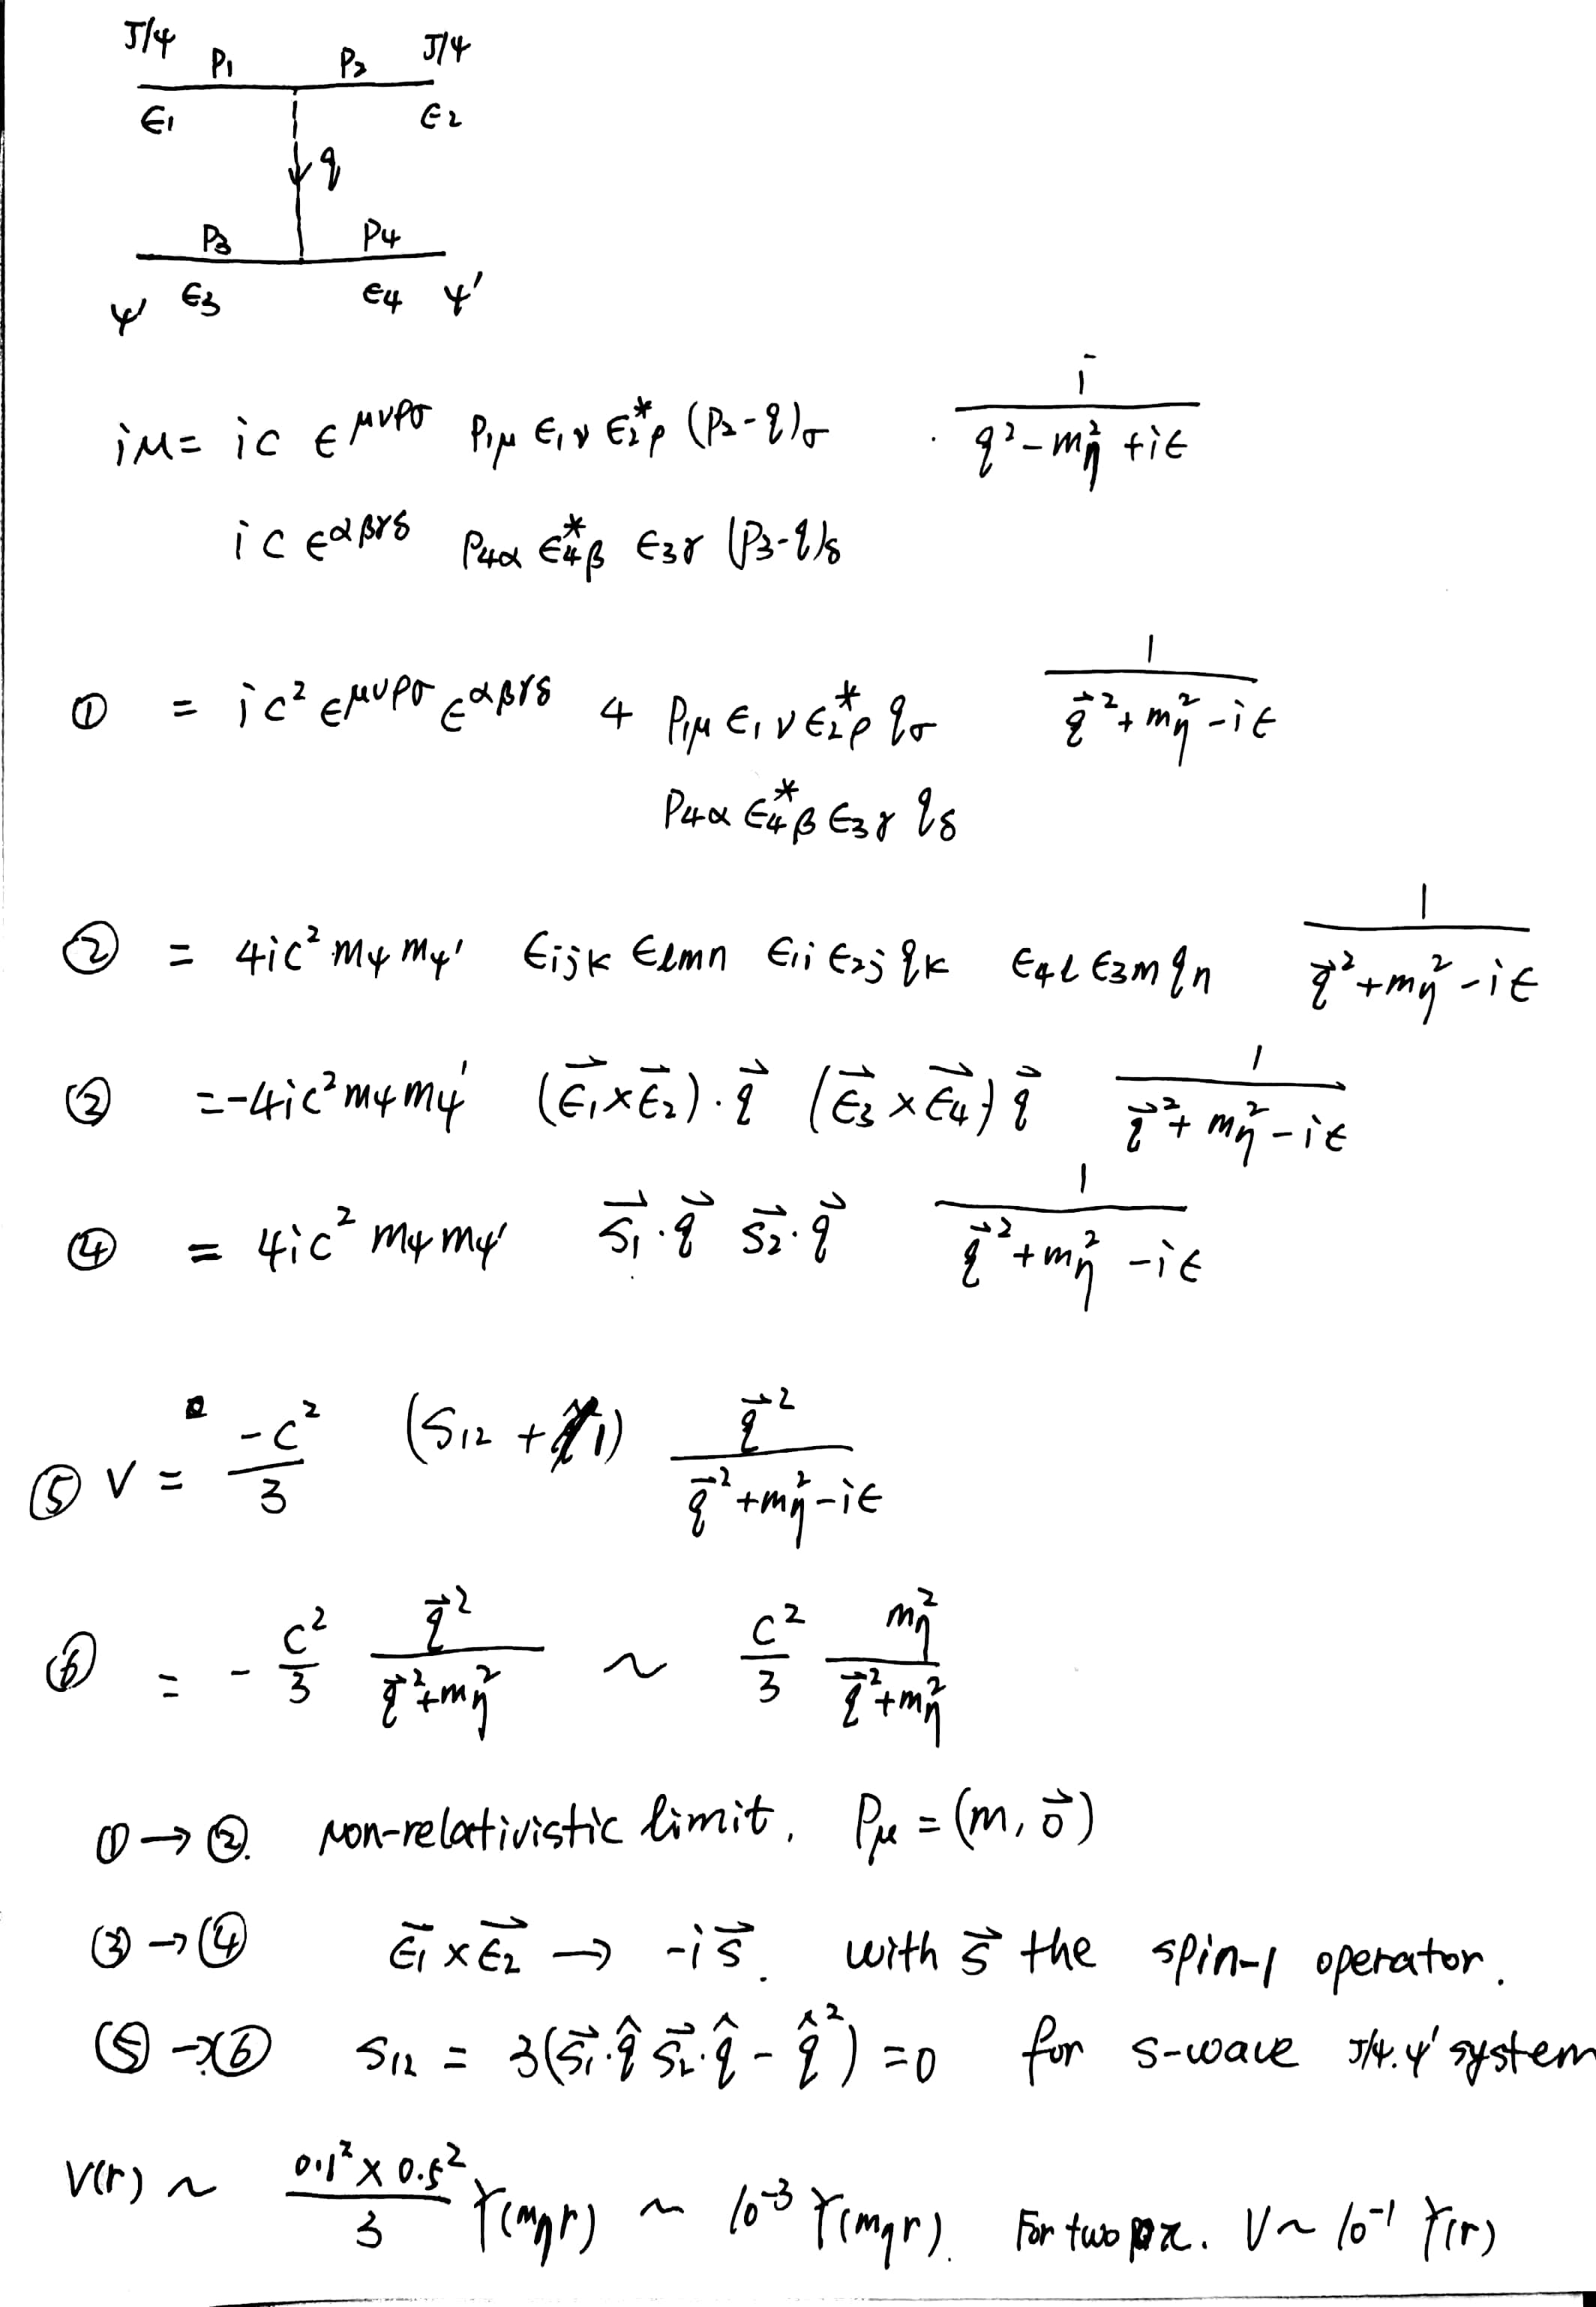 J/ψ P₁ P₂ J/ψ
ϵ₁ ϵ₂
q
P₃ P₄
ψ' ϵ₃ ϵ₄ ψ'
iM = ic ϵ^{μνρσ} P₁μ ϵ₁ν ϵ₂*ρ (P₂-q)σ · i / (q²-mη²+iϵ)
ic ϵ^{αβγδ} P₄α ϵ₄*β ϵ₃γ (P₃-q)δ
① = ic² ϵ^{μνρσ} ϵ^{αβγδ} 4 P₁μ ϵ₁ν ϵ₂*ρ qσ 1 / (q⃗²+mη²-iϵ)
P₄α ϵ₄*β ϵ₃γ qδ
② = 4ic² mψ mψ' ϵijk ϵlmn ϵ₁i ϵ₂j qk ϵ₄l ϵ₃m qn 1 / (q⃗²+mη²-iϵ)
③ = -4ic² mψ mψ' (ϵ⃗₁×ϵ⃗₂)·q⃗ (ϵ⃗₃×ϵ⃗₄) q⃗ 1 / (q⃗²+mη²-iϵ)
④ = 4ic² mψ mψ' S⃗₁·q⃗ S⃗₂·q⃗ 1 / (q⃗²+mη²-iϵ)
⑤ V = -c²/3 (S₁₂ + 1) q⃗² / (q⃗²+mη²-iϵ)
⑥ = - c²/3 q⃗² / (q⃗²+mη²) ~ c²/3 mη² / (q⃗²+mη²)
①→②. non-relativistic limit. Pμ = (m, 0⃗)
③→④ ϵ⃗₁×ϵ⃗₂ → -iS⃗. with S⃗ the spin-1 operator.
⑤→⑥ S₁₂ = 3(S⃗₁·q̂ S⃗₂·q̂ - q̂²) = 0 for s-wave J/ψ.ψ' system
V(r) ~ 0.1²×0.5² / 3 Y(mηr) ~ 10⁻³ Y(mηr). For two π. V ~ 10⁻¹ Y(r)